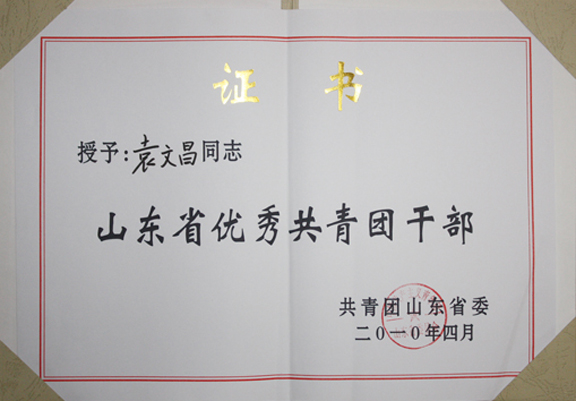 证书
授予:袁文昌同志
山东省优秀共青团干部
共青团山东省委
二〇一〇年四月